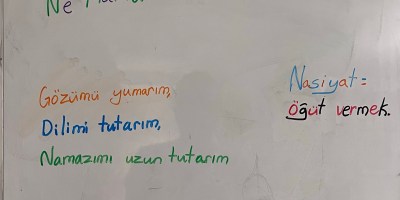 Ne
Gözümü yumarım,
Dilimi tutarım,
Namazımı uzun tutarım
Nasiyat =
Öğüt vermek.